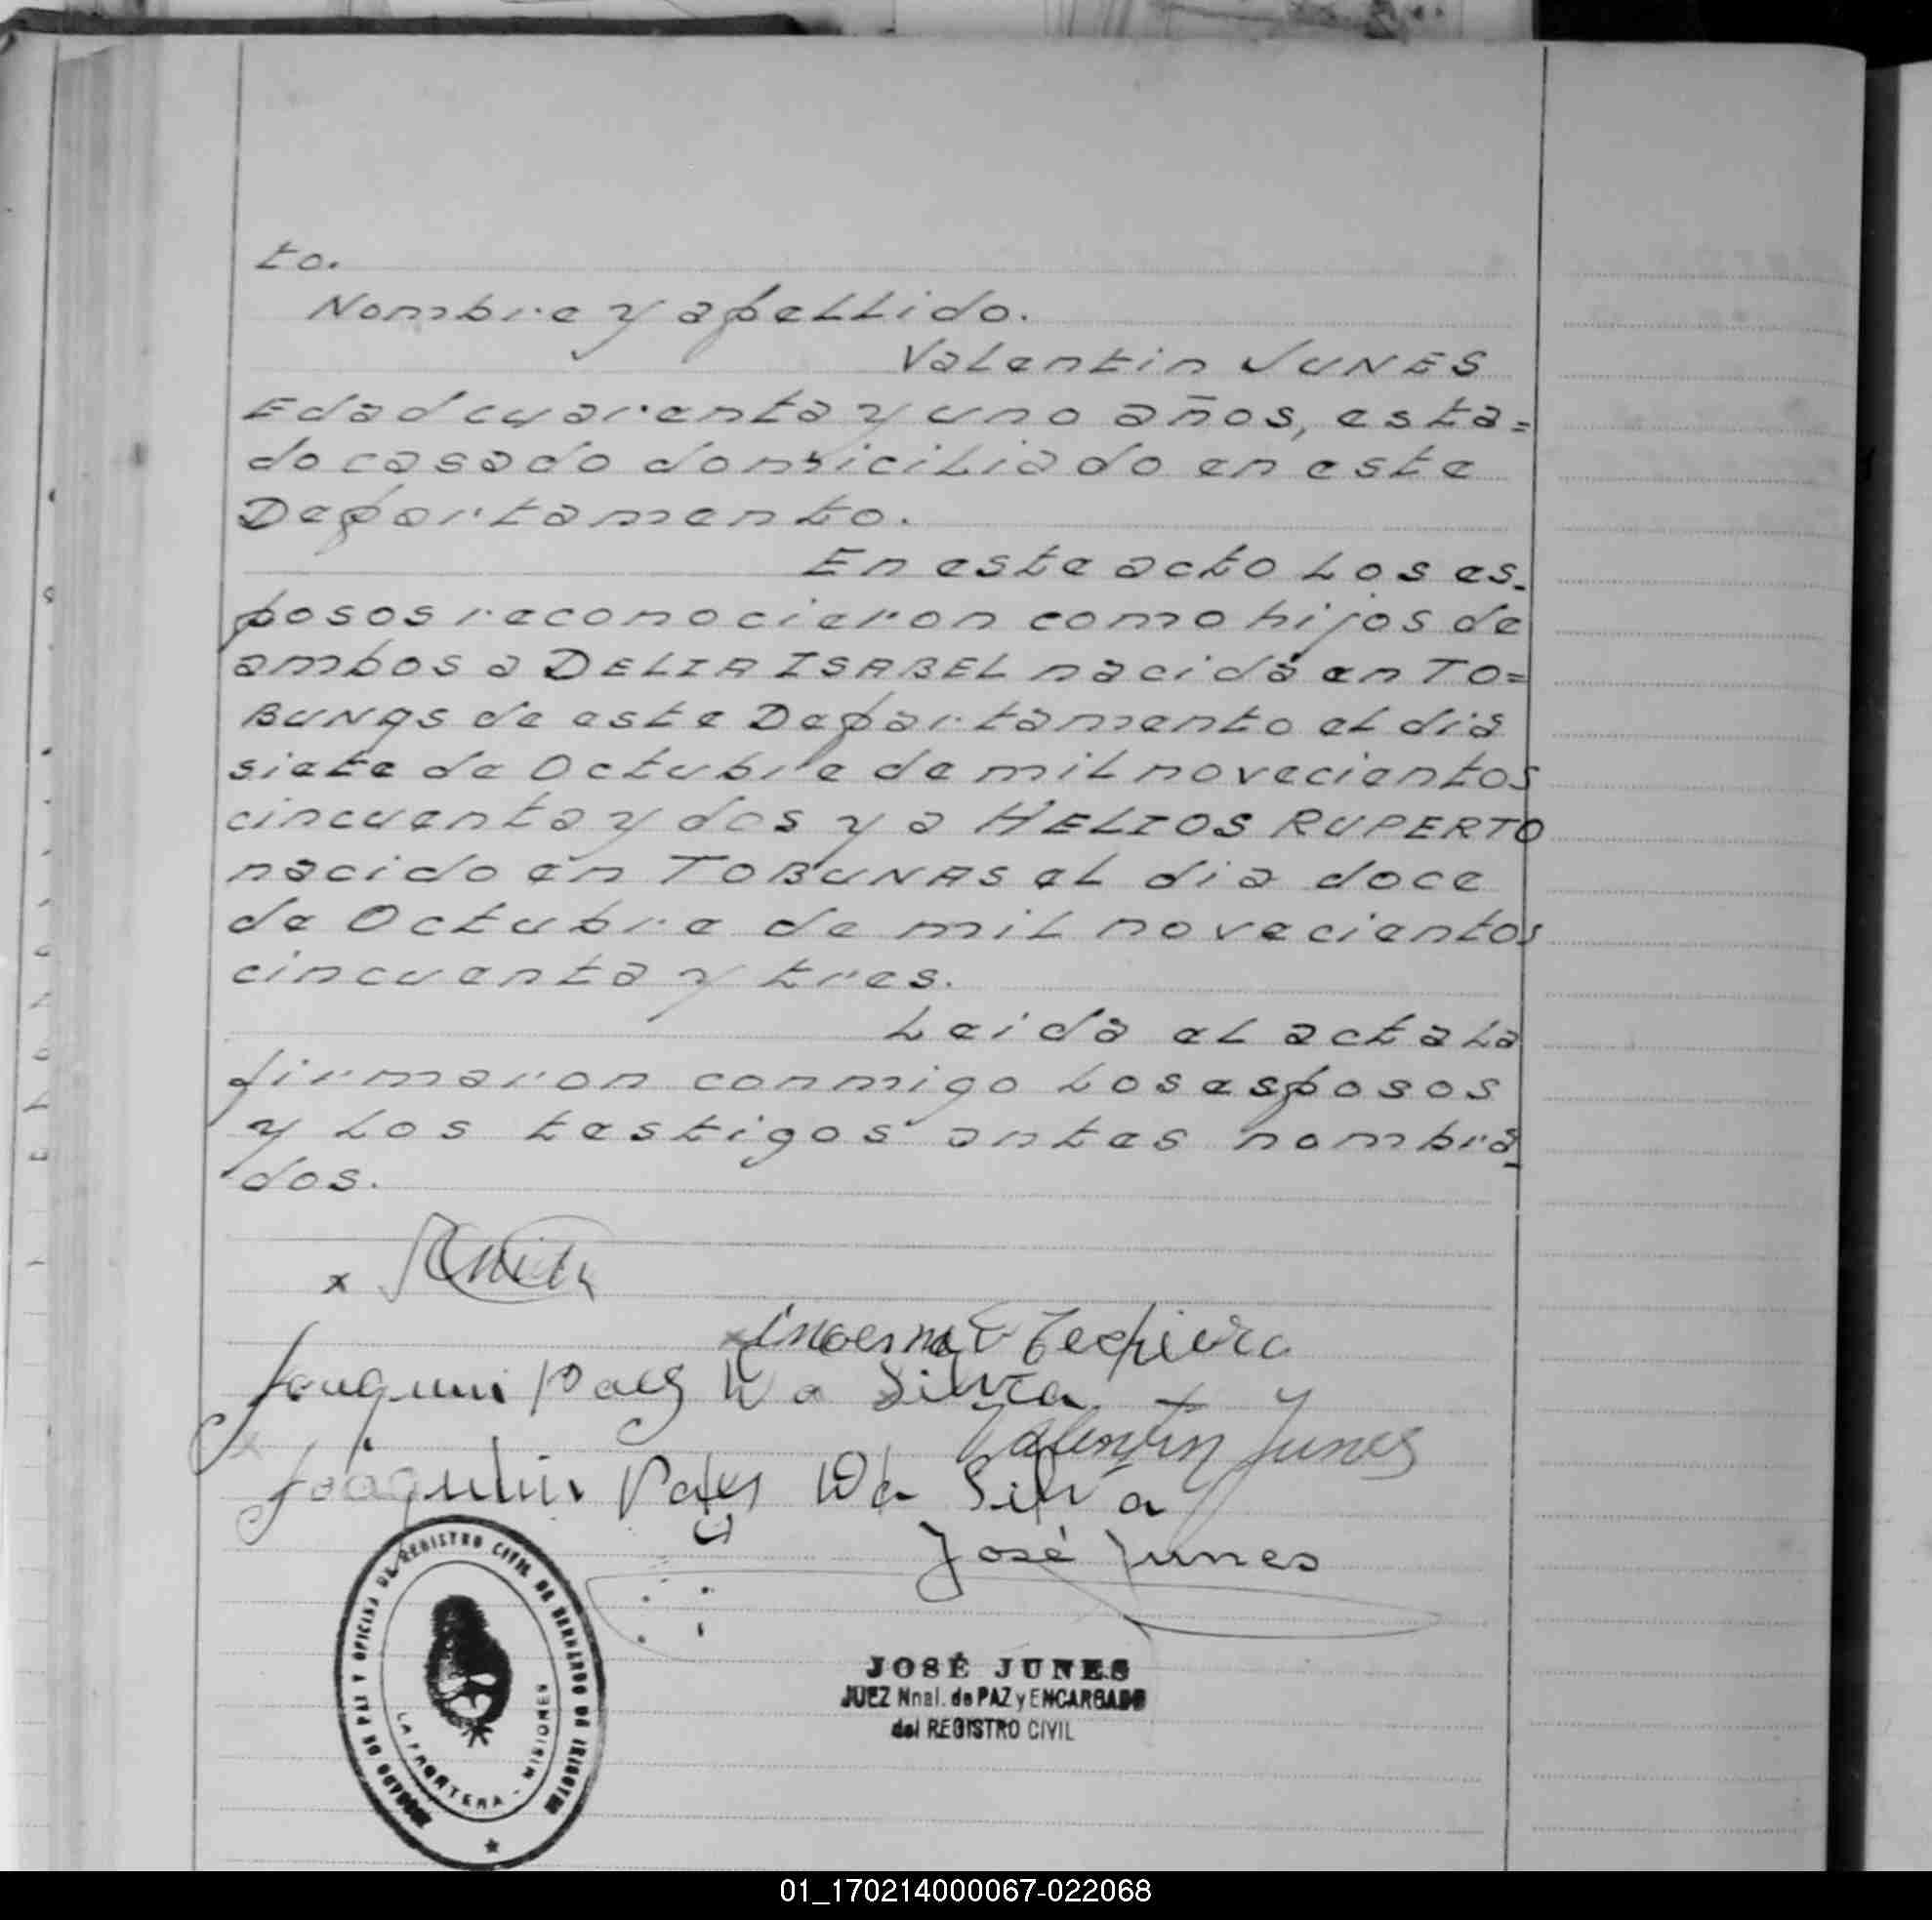 to.
Nombre y apellido.
Valentin JUNES
Edad cuarenta y uno años, esta=
do casado domiciliado en este
Departamento.
En este acto los es-
posos reconocieron como hijos de
ambos a DELIA ISABEL nacida en TO=
BUNAS de este Departamento el dia
siete de Octubre de mil novecientos
cincuenta y dos y a HELIOS RUPERTO
nacido en TOBUNAS el dia doce
de Octubre de mil novecientos
cincuenta y tres.
Leida el acta la
firmaron conmigo los esposos
y los testigos antes nombra-
dos.
x
Joaquin Paes Da Silva
Valentin Junes
Joaquin Paes Da Silva
José Junes
JUZGADO DE PAZ Y OFICINA DE REGISTRO CIVIL DE BERNARDO DE IRIGOYEN
LA FRONTERA - MISIONES
JOSÉ JUNES
JUEZ Nnal. de PAZ y ENCARGADO
del REGISTRO CIVIL
01_170214000067-022068